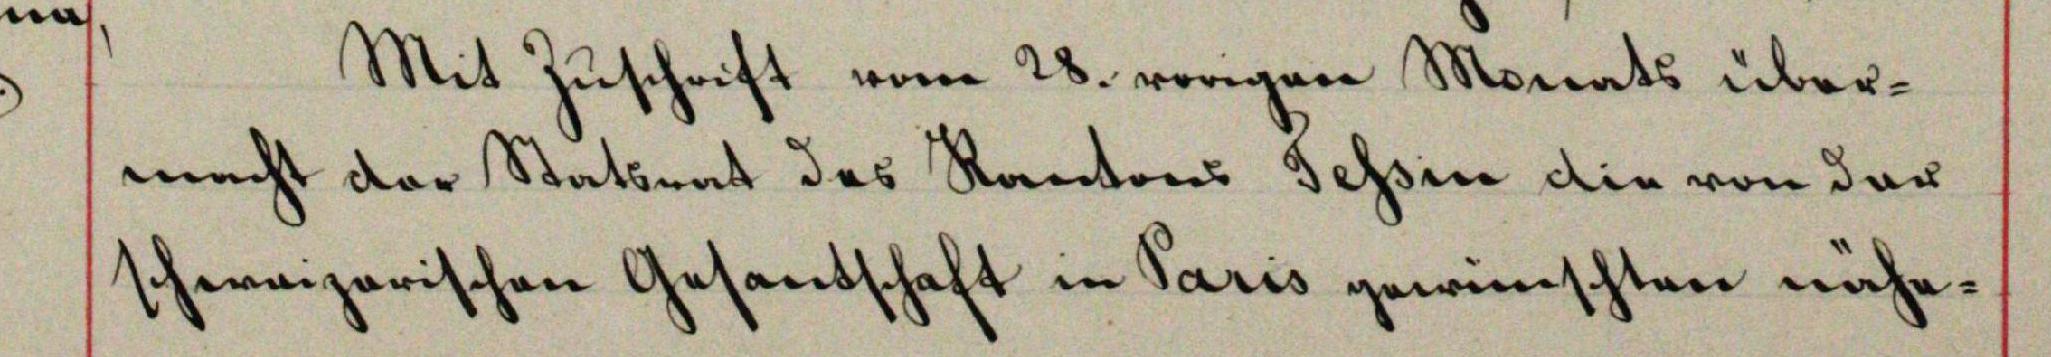 na,
Mit Zuschrift vom 28. vorigen Monats über=
macht der Statsrat des Kantons Teßin die von der
schweizerischen Gesantschaft in Paris gewünschten nähe=